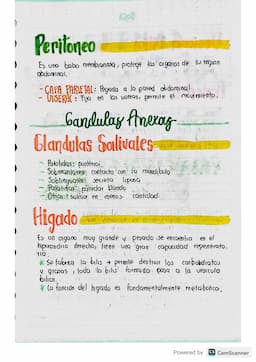 Peritoneo
Es una baba membranosa, protege los organos de su region
abdominal.
- CAPA PARIETAL: Pegada a la pared abdominal
- VISERAL: Fija en las viseras, permite el movimiento.
Gandulas Anexas
Glandulas Salivales
- Parotidas:
- Submaxilares: contacto con la mandibula
- Sublinguales: secreta
- Palatinas: paladar blando
- Otras: saliva en menos cantidad
Higado
Es un organo muy grande y pesado se encuentra en el
hipocondrio derecho, tiene una gran capacidad regenerato
ria
* Se fabrica la bilis → permite destruir los carbohidratos
y grasas, toda la bilis formada pasa a la vesicula
biliar.
* La funcion del higado es fundamentalmente metabolica,
Powered by CS CamScanner